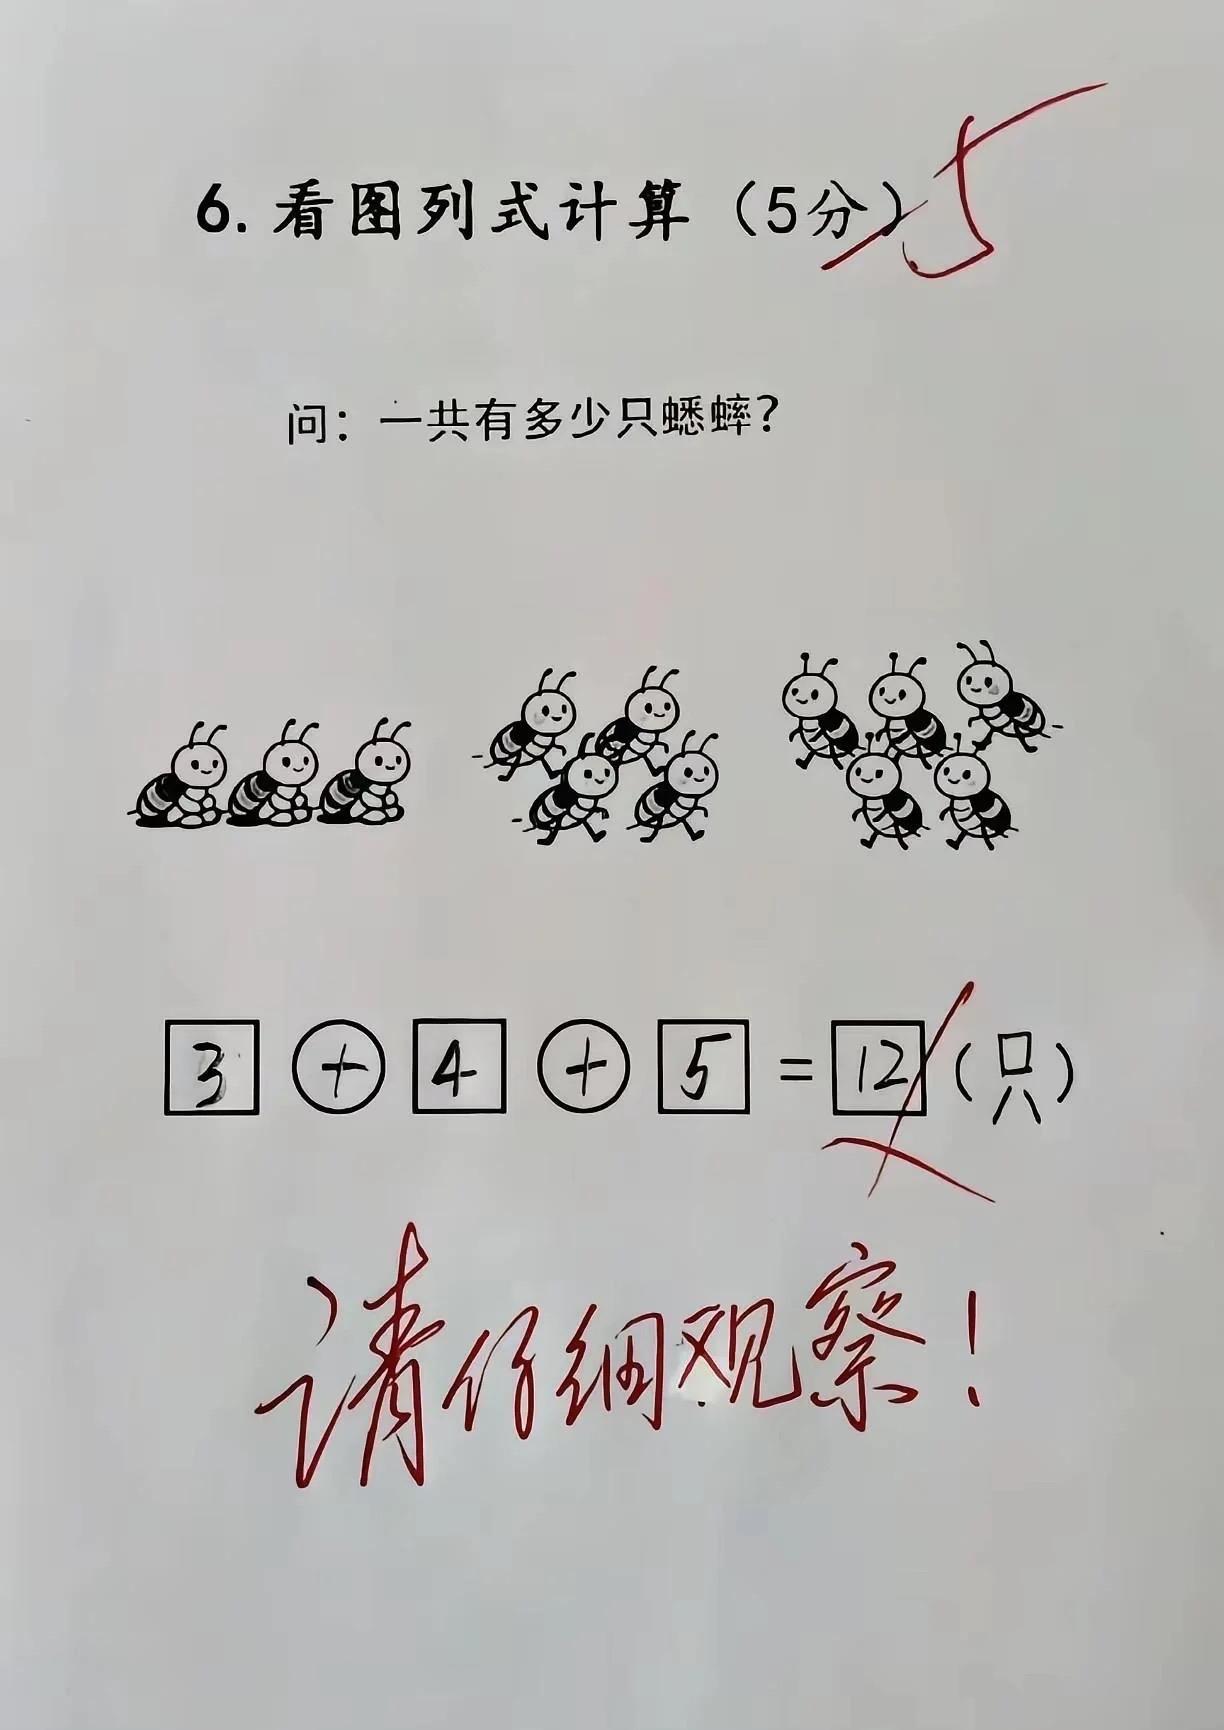 6. 看图列式计算（5分） -5
问：一共有多少只蟋蟀？
3 + 4 + 5 = 12 （只）
请仔细观察！